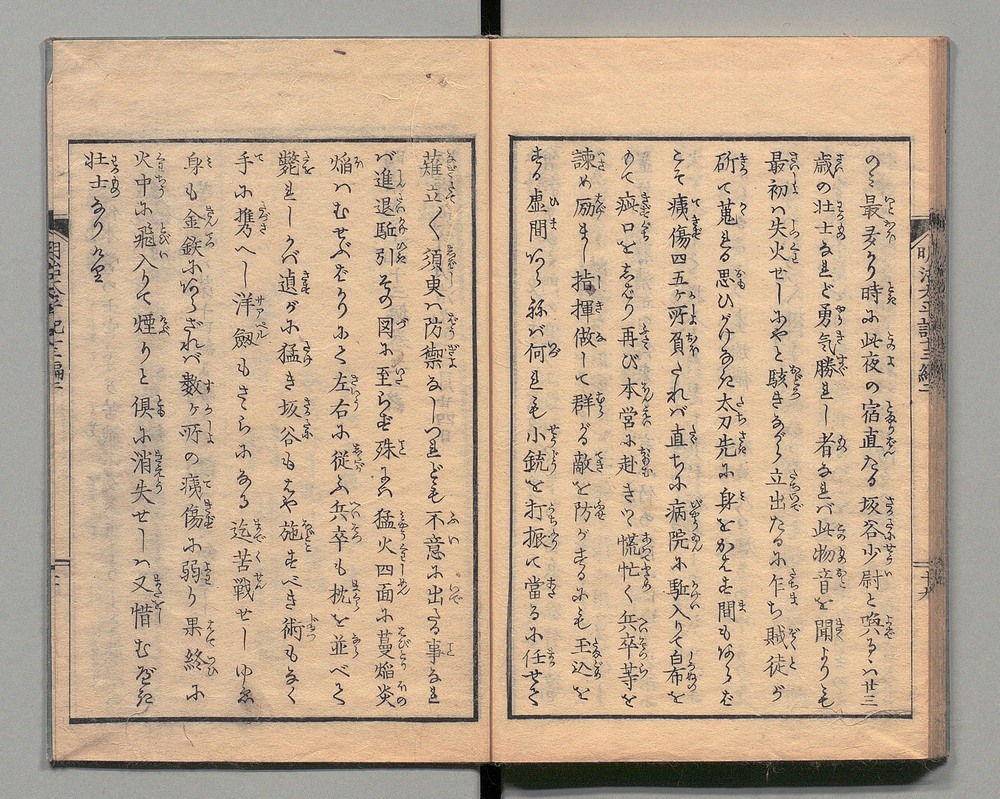 のミ最多かり時に此夜の宿直たる坂谷少尉と喚るハ廿三
歳の壮士なれど勇気勝れし者なれバ此物音を聞よりも
最初ハ失火せしにやと駭きながら立出たるに乍ち賊徒が
斫て蒐れる思ひがけなき太刀先に身をかはす間もあらず
こて痍傷四五ヶ所負たれバ直ちに病院に駈入りて白布を
もて疵口をしばり再び本営に赴きつゝ慌忙く兵卒等を
諫め励まし指揮做して群がる敵を防がするにも玉込を
する虚間あらねバ何れも小銃を打振て當るに任せて
薙立〳〵須束ハ防禦なしつれども不意に出たる事なれ
バ進退駈引その図に至らず殊にハ猛火四面に蔓焔炎
焔ハむせぶばかりにて左右に従ふ兵卒も枕を並べて
斃れしかバ逭が猛き坂谷もはや施すべき術もなく
手に携へし洋劔もさゝらになる迄苦戦せしゆゑ
身も金鉄にあらざれバ数ヶ所の痍傷に弱り果終に
火中に飛入りて煙りと倶に消失せしハ又惜むべき
壮士なりけり
明治太平記十三編二